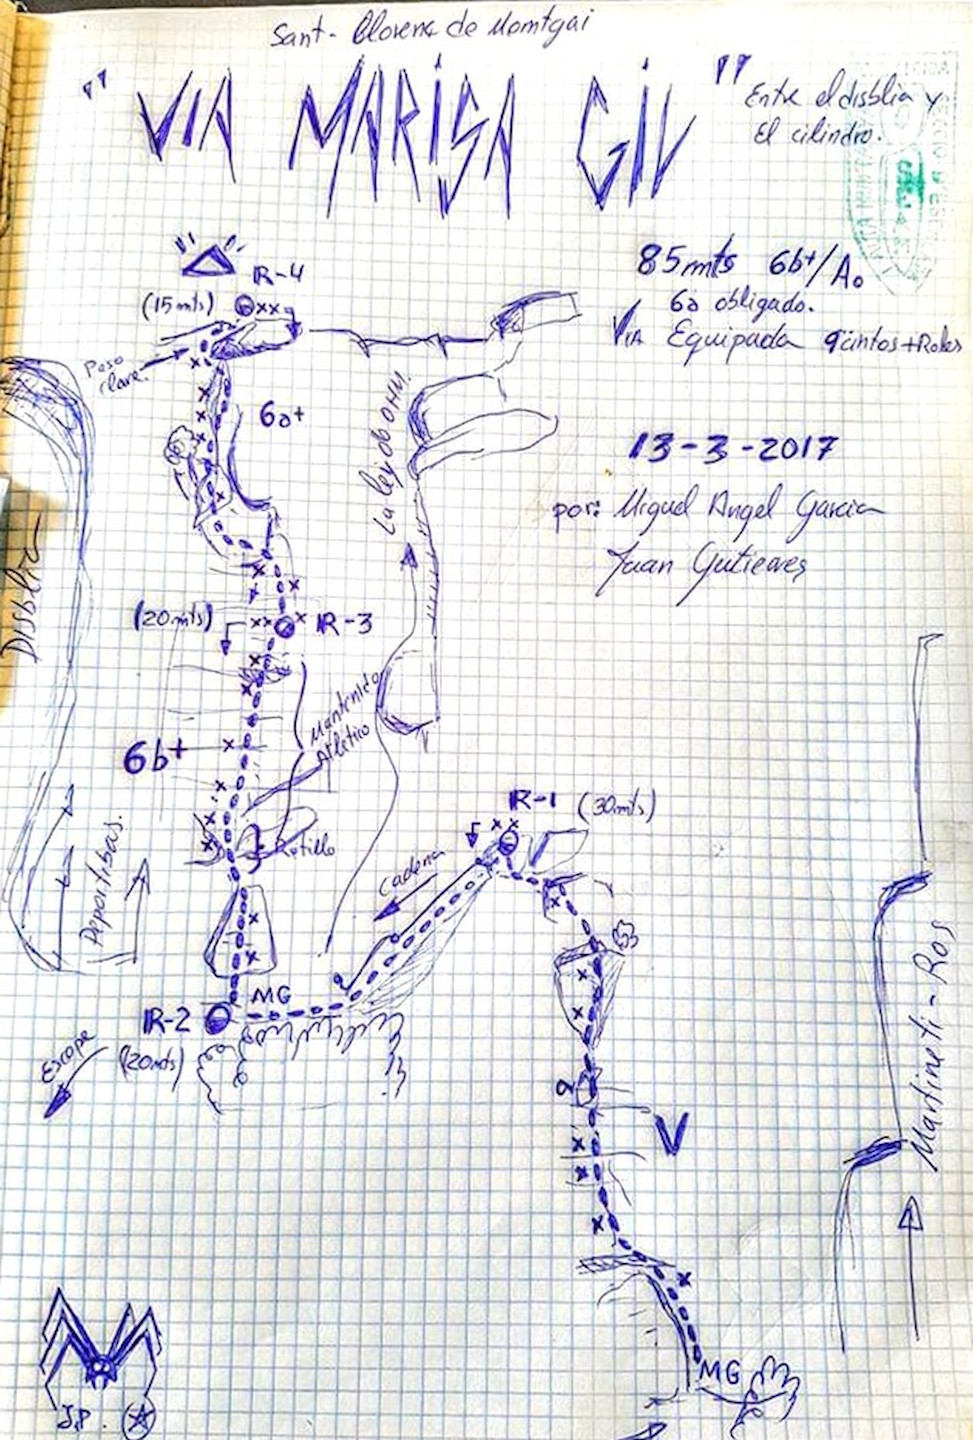 Sant- Llorenç de Momtgai
"VIA MARISA GIL"
Entre el disblia y
El cilindro.
85mts 6b+/Ao
6a obligado.
VIA Equipada qcintos+Roles
13-3-2017
por: Miguel Angel Garcia
Juan Gutierres
R-4
(15mts)
Paso
clave.
6a+
La ley de OHM.
Disblia
(20mts)
R-3
Mantenido
Atletico
6b+
Ratillo
Deportibas.
R-1 (30mts)
Cadena
MG
R-2
(20mts)
Escape
V
Martineti-Ros
MG
J.P.